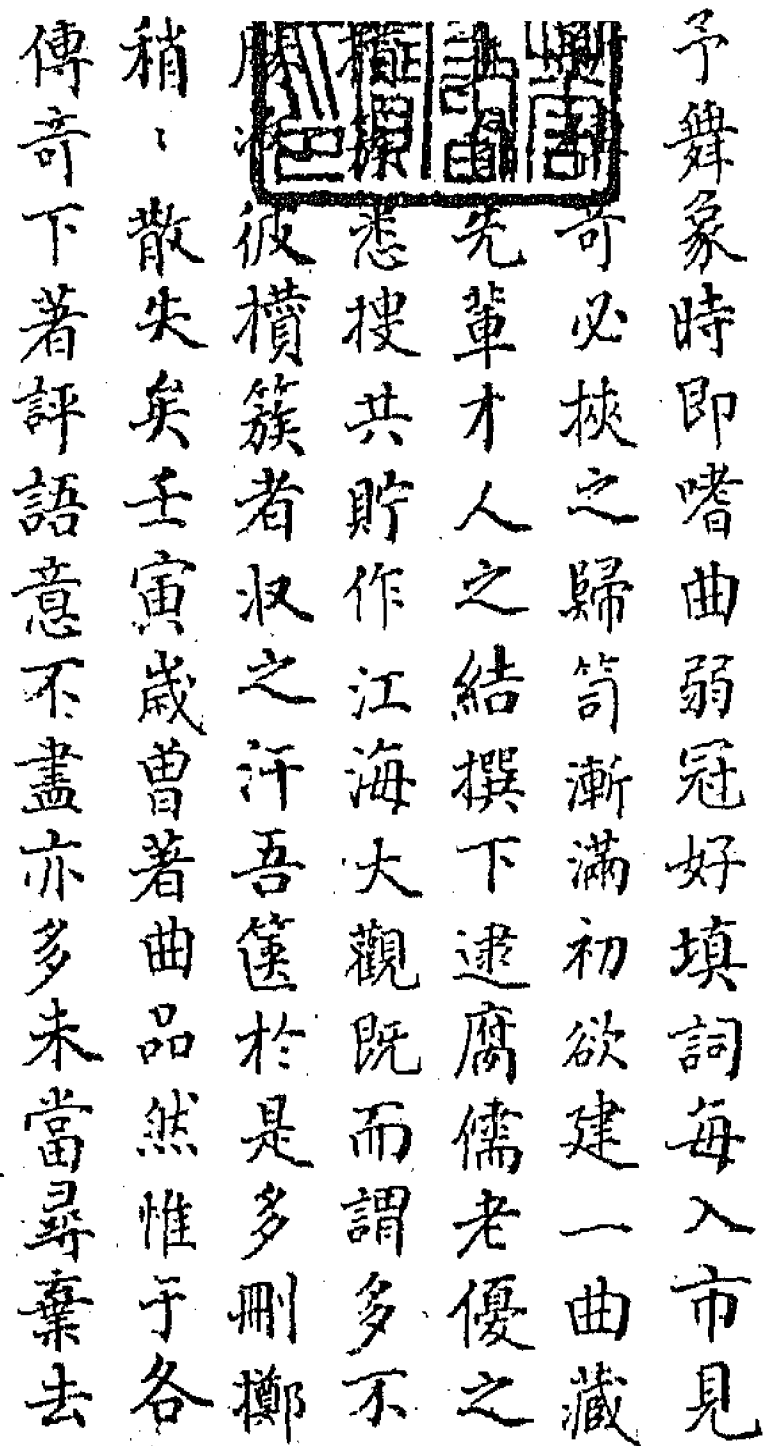 予舞象時即嗜曲弱冠好填詞每入市見
奇必挾之歸笥漸滿初欲建一曲藏
先輩才人之結撰下逮腐儒老優之
攛簇悉搜共貯作江海大觀既而謂多不
勝收彼攢簇者収之汗吾篋於是多刪擲
稍〻散失矣壬寅歲曾著曲品然惟于各
傳奇下著評語意不盡亦多未當尋棄去